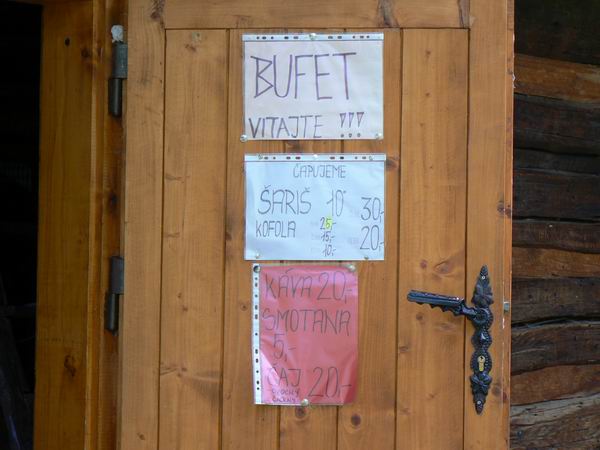 BUFET
VITAJTE !!!
ČAPUJEME
ŠARIŠ 10 30,-
25,-
KOFOLA 15,- 20,-
10,-
KÁVA 20,-
SMOTANA
5,-
ČAJ 20,-
OVOCNÝ
ČIERNY